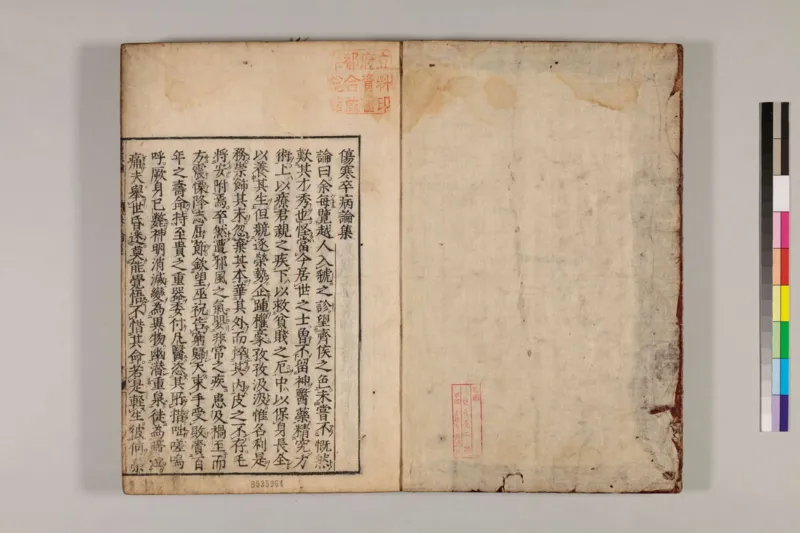 傷寒卒病論集
論曰余每覽越人入虢之診望齊侯之色未嘗不慨然
歎其才秀也怪當今居世之士曾不留神醫藥精究方
術上以療君親之疾下以救貧賤之厄中以保身長全
以養其生但競逐榮勢企踵權豪孜孜汲汲惟名利是
務崇飾其末忽棄其本華其外而悴其內皮之不存毛
將安附焉卒然遭邪風之氣嬰非常之疾患及禍至而
方震慄降志屈節欽望巫祝告窮歸天束手受敗賫百
年之壽命持至貴之重器委付凡醫恣其所措咄嗟嗚
呼厥身已斃神明消滅變為異物幽潛重泉徒為啼泣
痛夫舉世昏迷莫能覺悟不惜其命若是輕生彼何榮